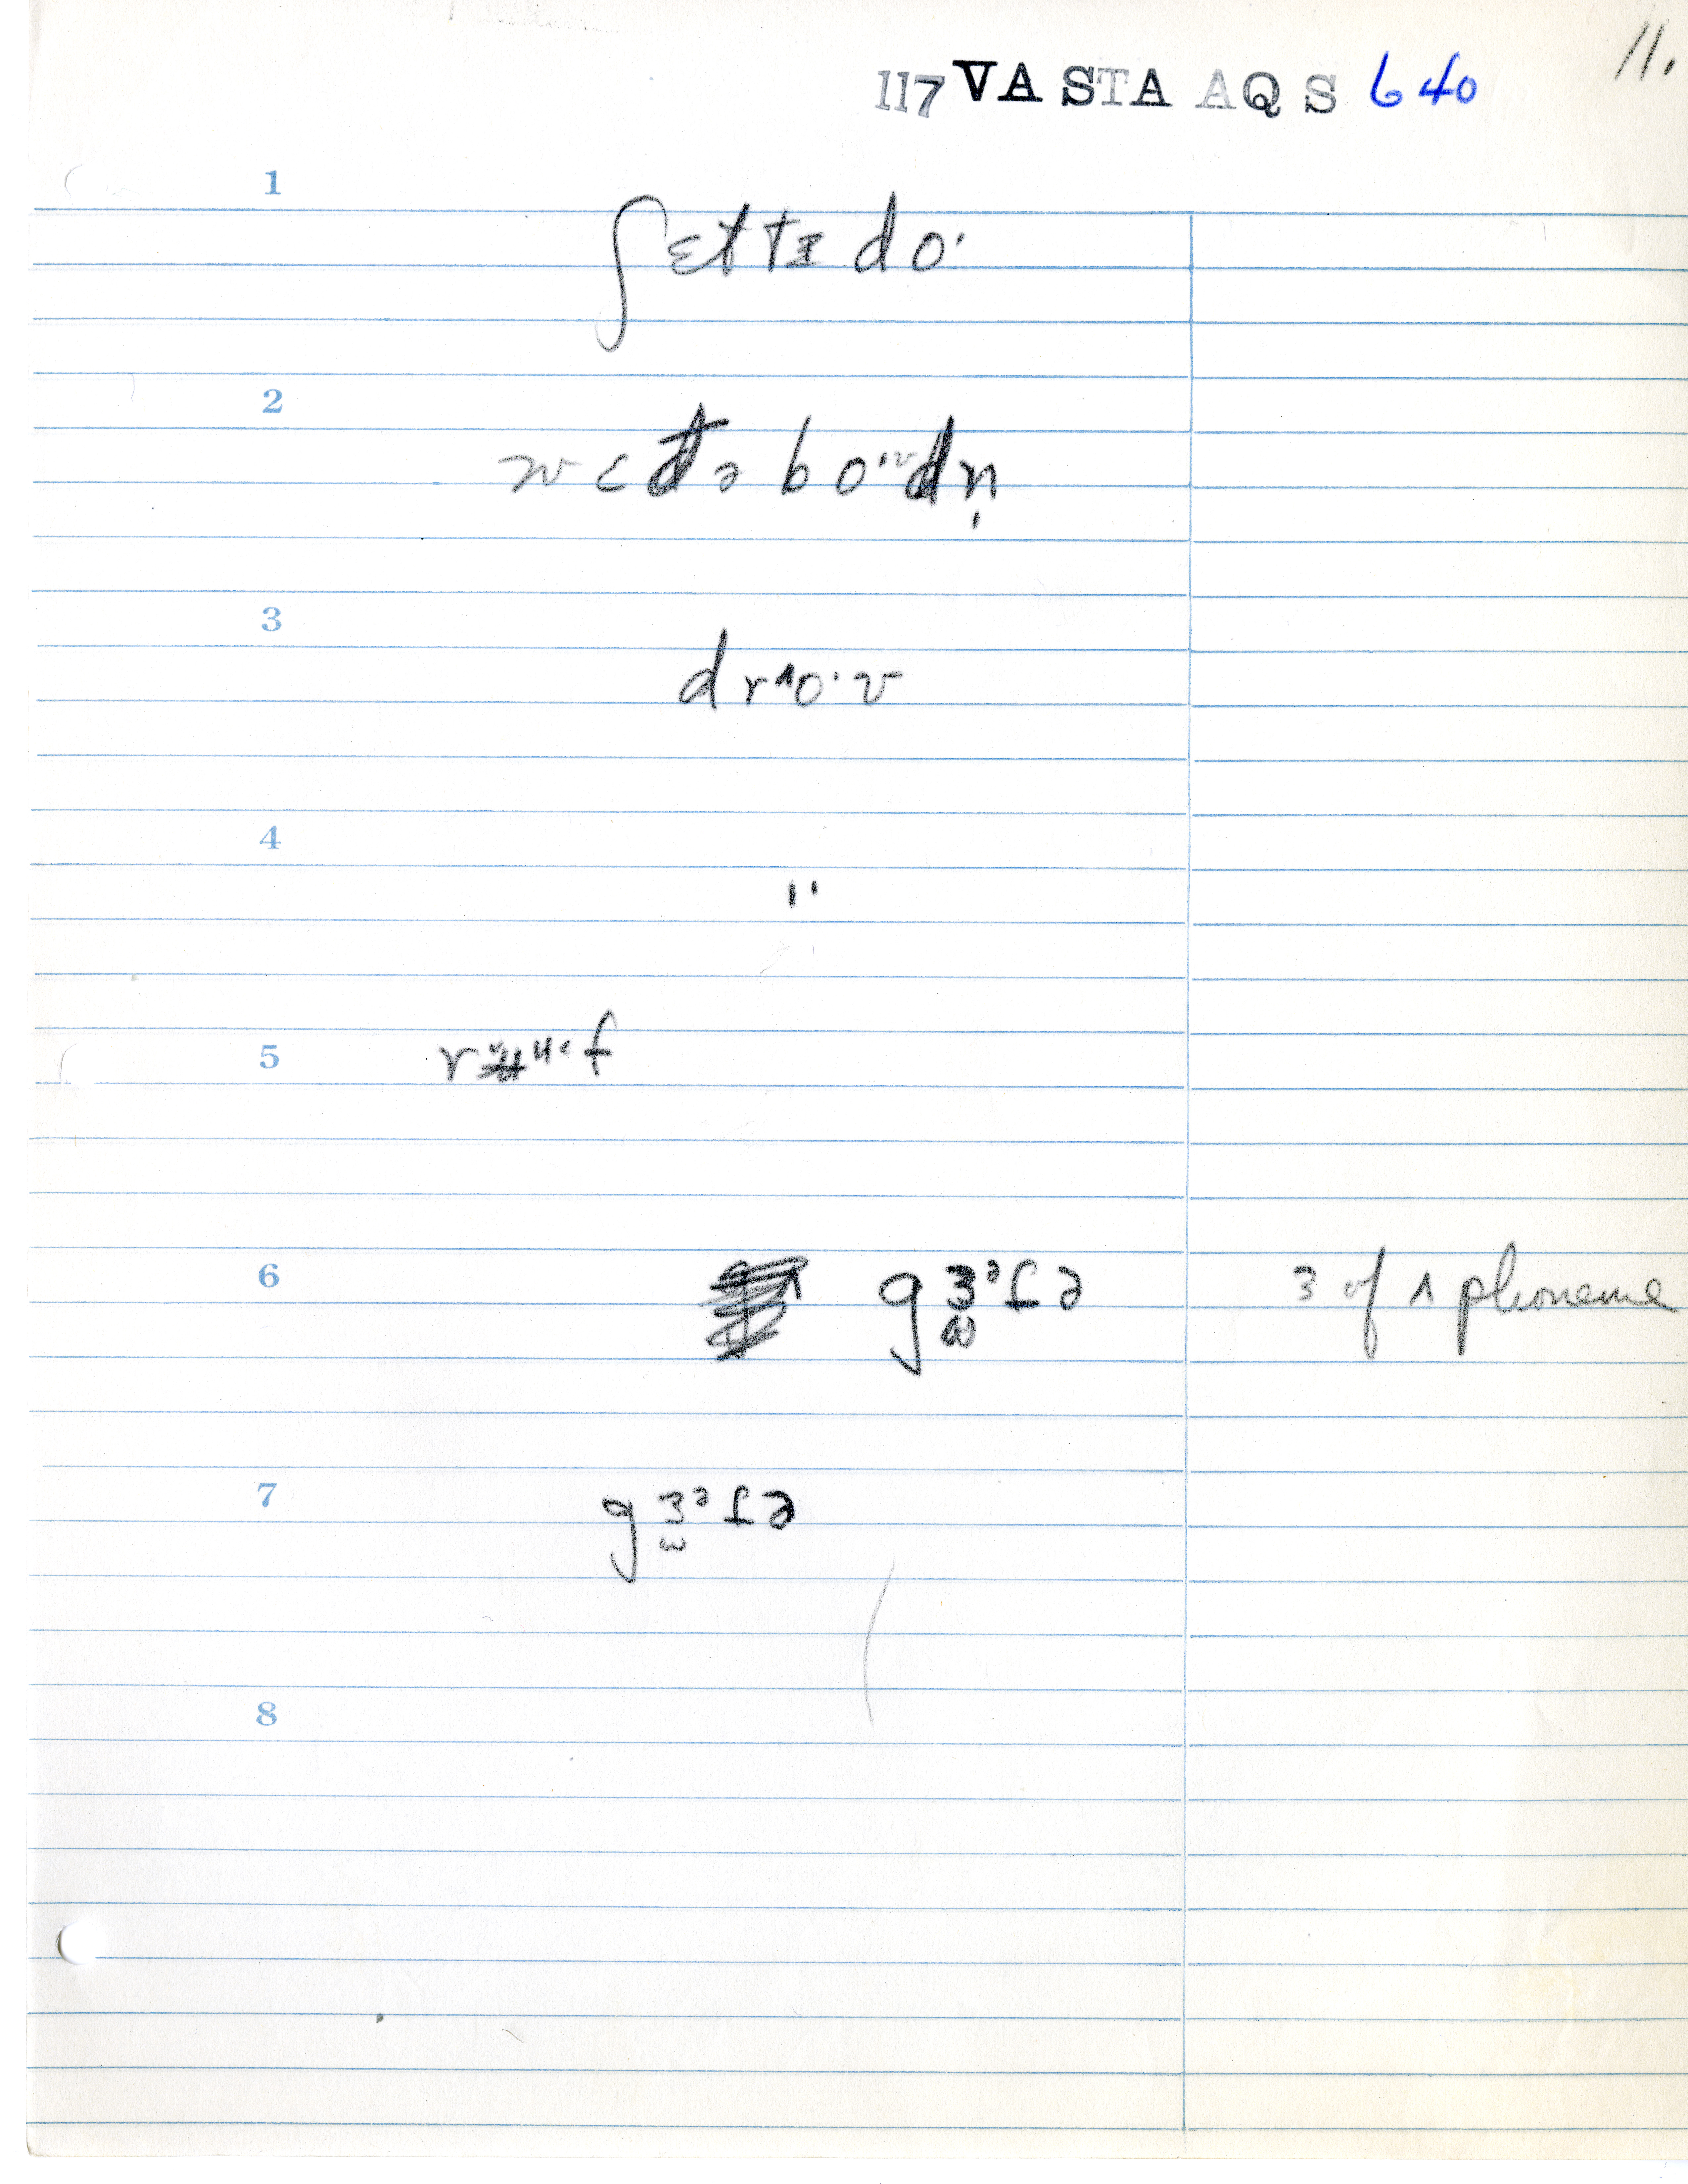 11.
117 VA STA AQS 640
1
ʃɛttɪ do·
2
wɛdə bo·ᵛdn̩
3
drʌo·v
4
"
5
rʉᵘ·f
6
gɜᵊfə 3 of ʌ phoneme
7
gɜᵊfə
8